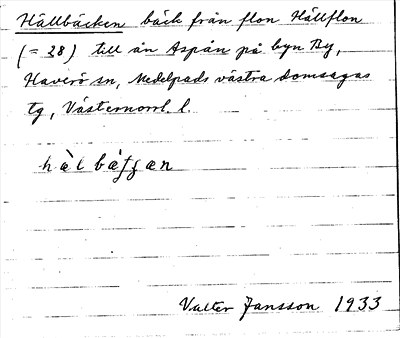 Hällbäcken bäck från flon Hällflon
(= 28) till ån Aspån på byn By,
Haverö sn, Medelpads västra domsagas
tg, Västernorrl. l.
hàlbàfgæn
Valter Jansson 1933